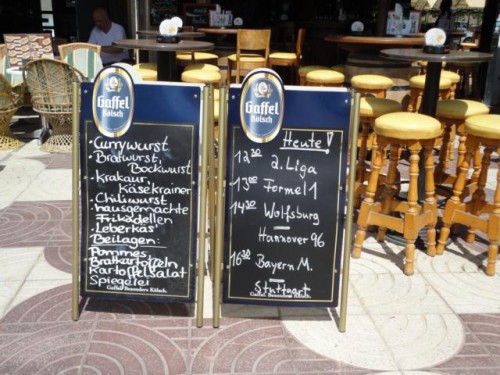 Gaffel
Kölsch
Currywurst
Bratwurst,
Bockwurst
Krakaur,
Käsekrainer
Chiliwurst
hausgemachte
Frikadellen
Leberkäs
Beilagen:
Pommes,
Bratkartofeln
Kartoffelsalat
Spiegelei
Gaffel. Besonders Kölsch.
Gaffel
Kölsch
Heute!
12:30 2.Liga
13:00 Formel 1
14:30 Wolfsburg
-
Hannover 96
16:30 Bayern M.
-
Stuttgart
Gaffel. Besonders Kölsch.